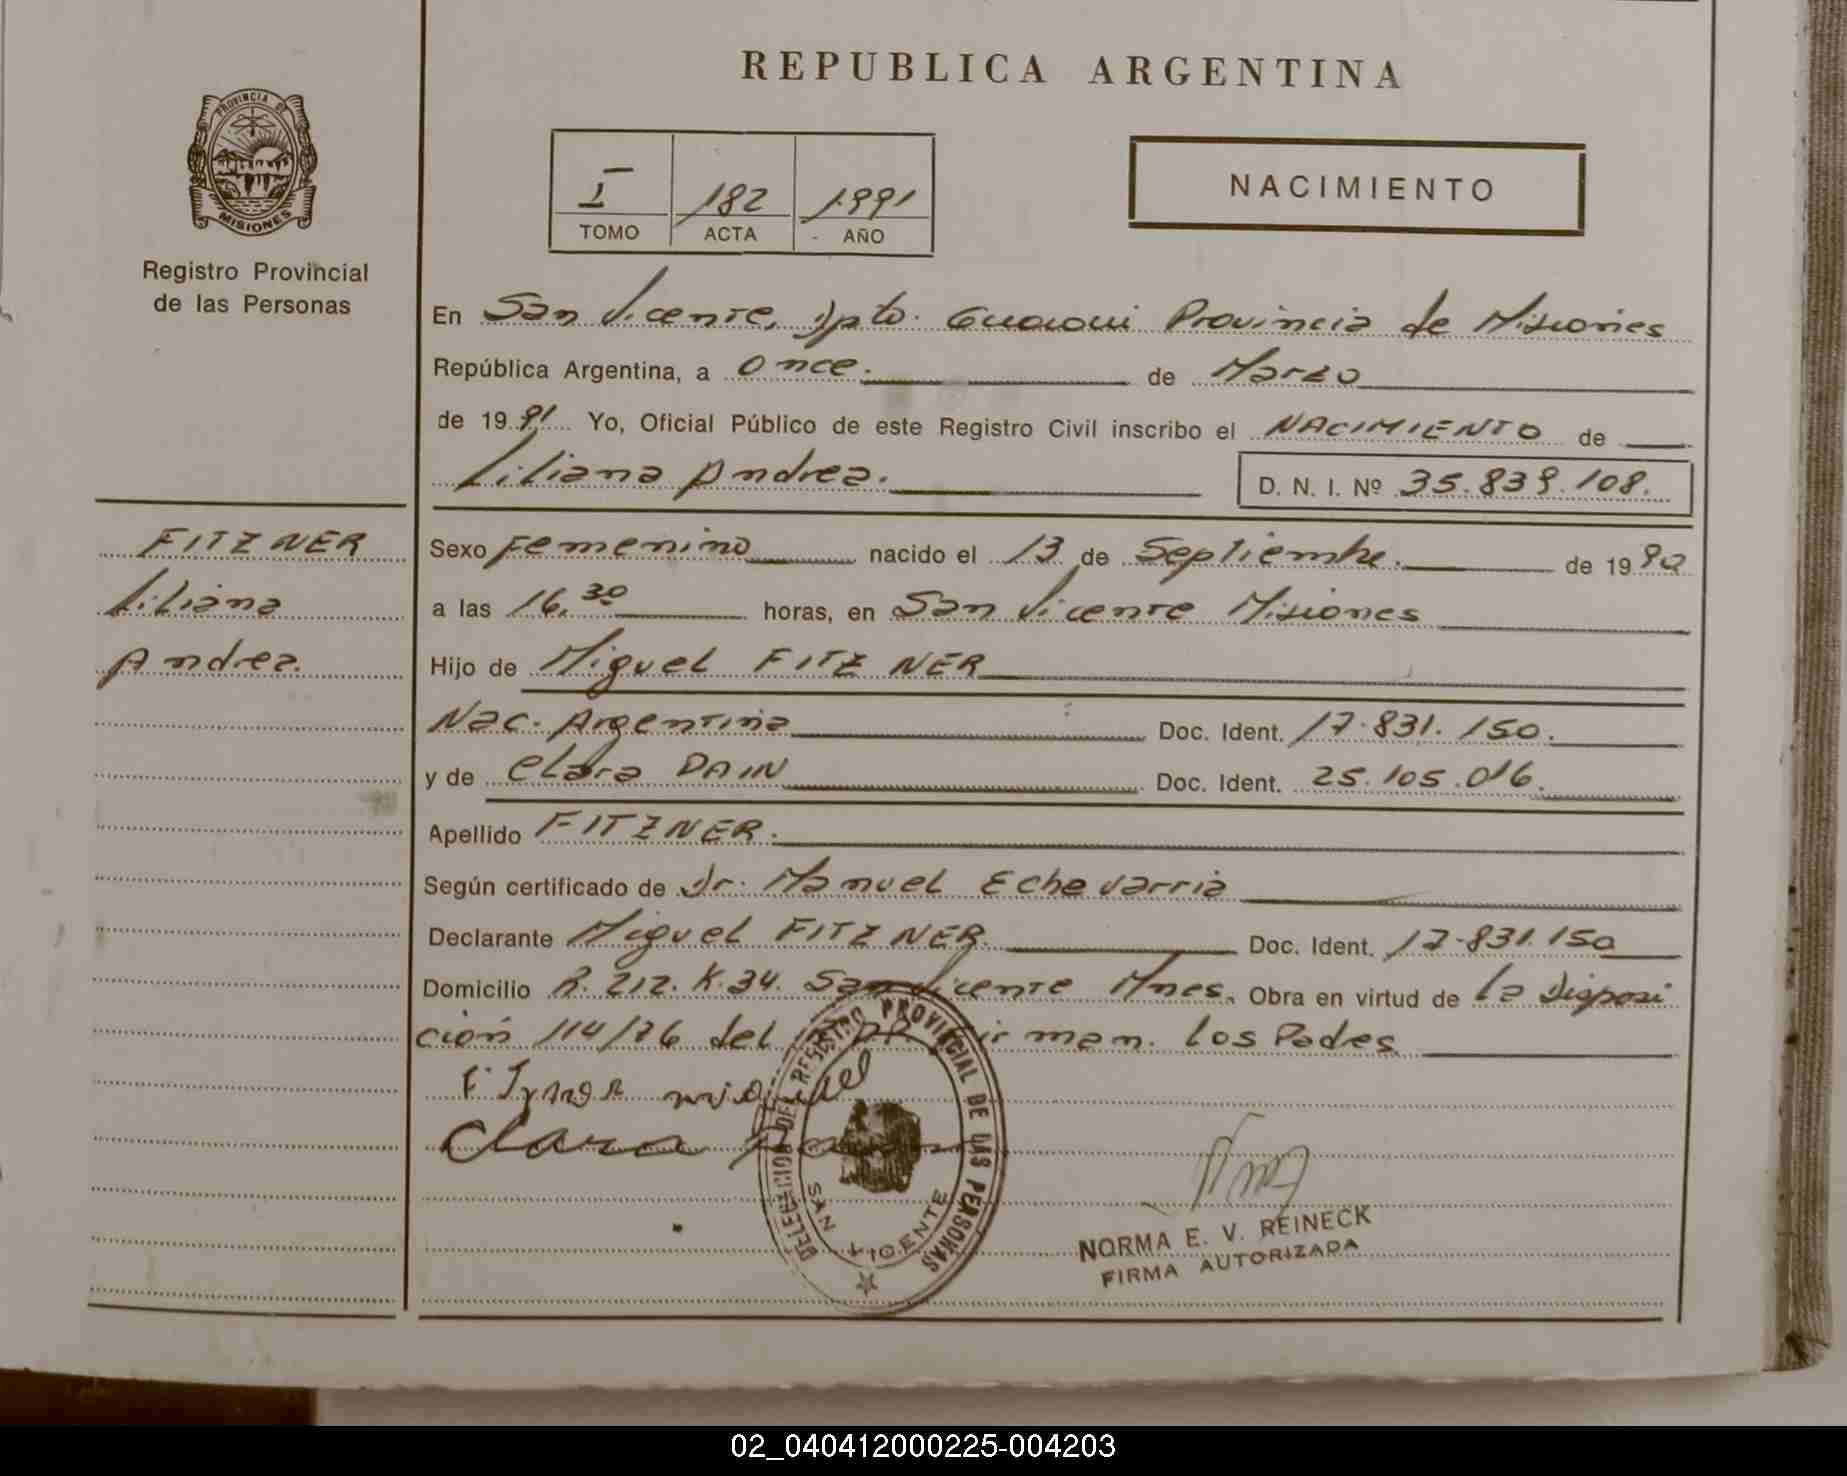 REPUBLICA ARGENTINA
PROVINCIA DE
MISIONES
Registro Provincial
de las Personas
I 182 1991
TOMO ACTA AÑO
NACIMIENTO
En San Vicente, Dpto. Guaraní Provincia de Misiones
República Argentina, a once. de Marzo
de 1991 Yo, Oficial Público de este Registro Civil inscribo el NACIMIENTO de
Liliana Andrea. D. N. I. Nº 35.839.108.
FITZNER
Liliana
Andrea.
Sexo Femenino nacido el 13 de Septiembre. de 1990
a las 16.30 horas, en San Vicente Misiones
Hijo de Miguel FITZNER
Nac. Argentina Doc. Ident. 17.831.150.
y de Clara DAIN Doc. Ident. 25.105.016.
Apellido FITZNER.
Según certificado de Dr. Manuel Echevarria
Declarante Miguel FITZNER. Doc. Ident. 17.831.150
Domicilio R. 212. K.34. San Vicente Mnes. Obra en virtud de la Disposi
ción 114/76 del Firman. los Padres
miguel
Clara
DELEGACION DEL REGISTRO PROVINCIAL DE LAS PERSONAS
SAN VICENTE
NORMA E. V. REINECK
FIRMA AUTORIZADA
02_040412000225-004203